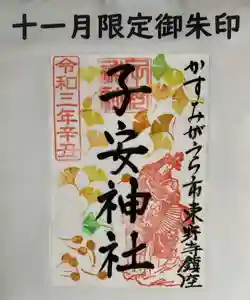 十一月限定御朱印
かすみがうら市東野寺鎮座
子安神社
令和三年辛丑